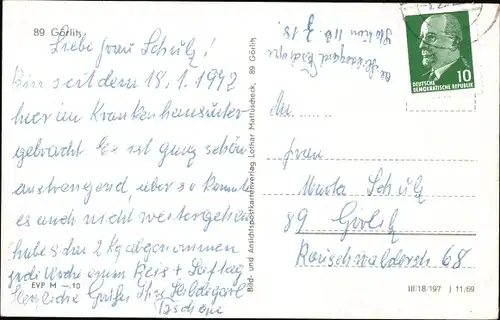 89 Görlitz
Liebe Frau Schulz!
Bin seit dem 18.1.1972
hier im Krankenhaus unter
gebracht. Es ist ganz schön
anstrengend, aber so konnte
es auch nicht weitergehen
habe schon 2 kg abgenommen
jede Woche einen Reis + Safttag
Herzliche Grüße Ihre Hildegard
EVP M —.10
Bild- und Ansichtspostkartenverlag Lothar Mattuscheck, 89 Görlitz
Hildegard
Station II
DEUTSCHE
DEMOKRATISCHE REPUBLIK
10
An ......
Frau
Marta Schulz
89 Görlitz
Rauschwalderstr. 68
III/18/197 J 11/69